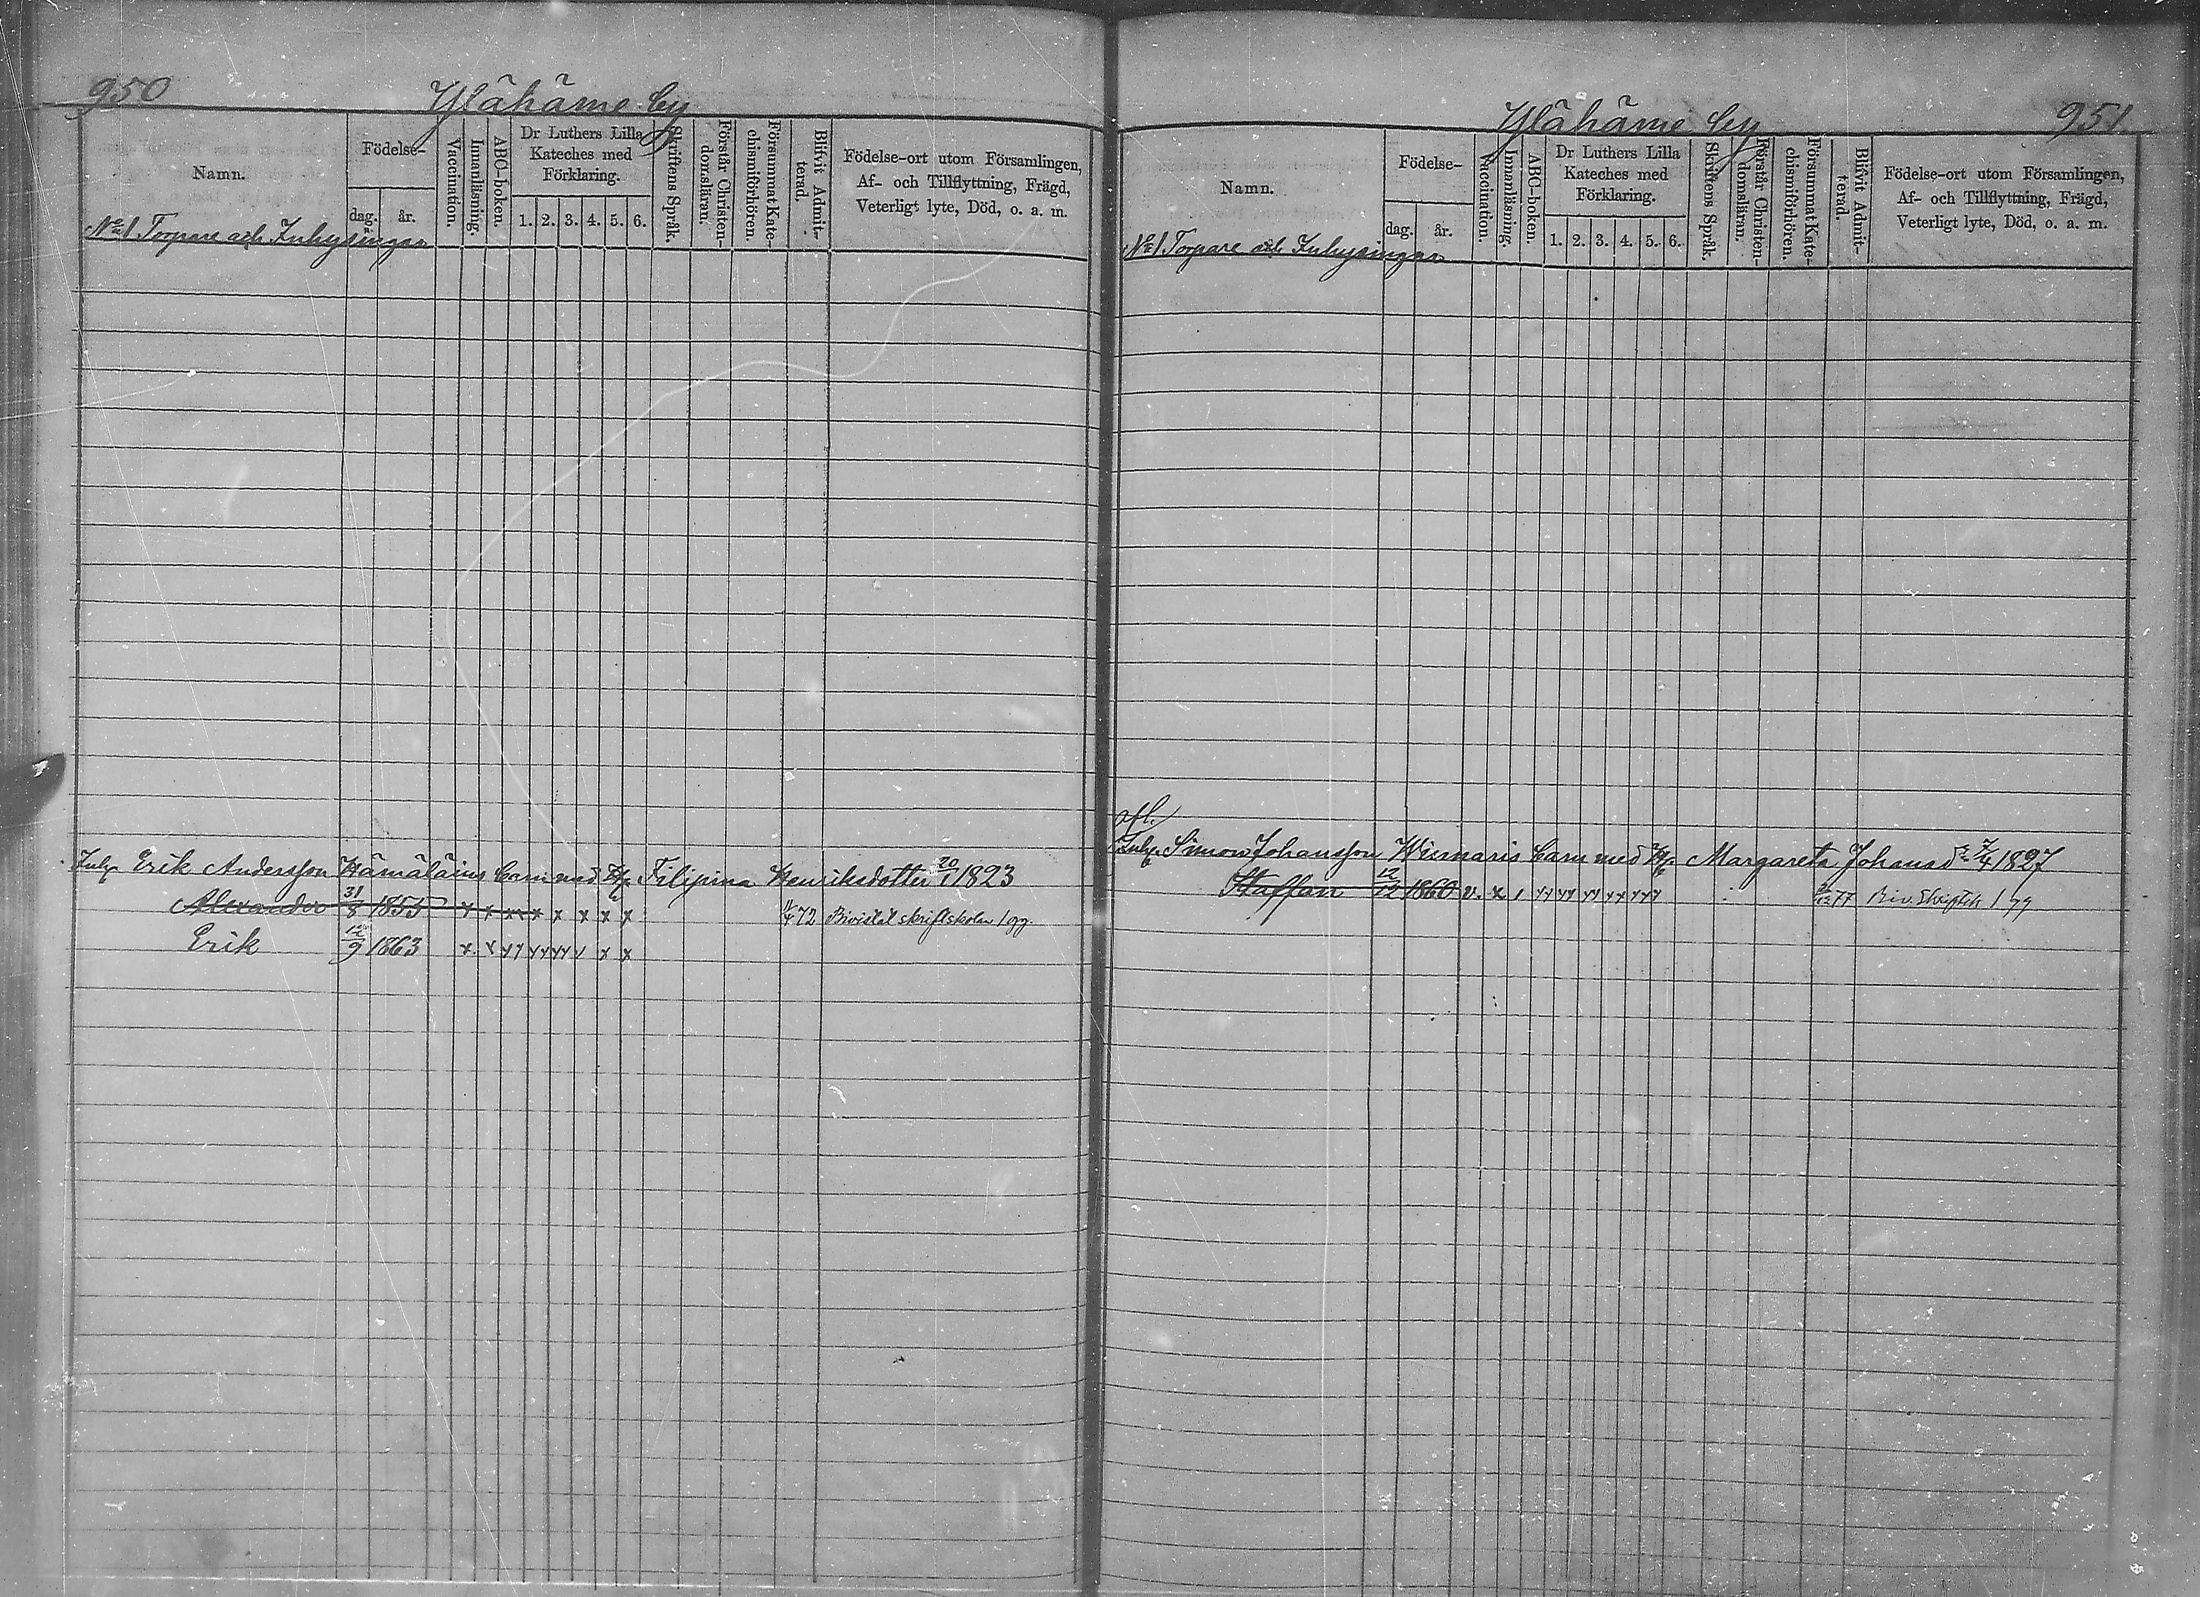 950
Ylähäme by
Namn.
Födelse-
dag.
år.
Vaccination.
Innanläsning.
ABC-boken.
Dr Luthers Lilla
Kateches med
Förklaring.
1. 2. 3. 4. 5. 6.
Skriftens Språk.
Förstår Christen-
domsläran.
Försummat Kate-
chismiförhören.
Blifvit Admit-
terad.
Födelse-ort utom Församlingen,
Af- och Tillflyttning, Frägd,
Veterligt lyte, Död, o. a. m.
No 1 Torpare och Inhysingar
Inh. Erik Andersson Hämäläins barn med Filipina Henriksdotter 20/1 1823
Alexander 31/8 1855 x x x x x x x x 72 Bivistat skriftskolan 1 gg.
Erik 12/9 1863
951
Ylähäme by
Namn.
Födelse-
dag.
år.
Vaccination.
Innanläsning.
ABC-boken.
Dr Luthers Lilla
Kateches med
Förklaring.
1. 2. 3. 4. 5. 6.
Skriftens Språk.
Förstår Christen-
domsläran.
Försummat Kate-
chismiförhören.
Blifvit Admit-
terad.
Födelse-ort utom Församlingen,
Af- och Tillflyttning, Frägd,
Veterligt lyte, Död, o. a. m.
No 1 Torpare och Inhysingar
afl.
Inh. Simon Johansson barn med Margareta Johansd:r 1827
Staffan 12/12 1860 v. x 77 Biv. Skriftsk 1 gg